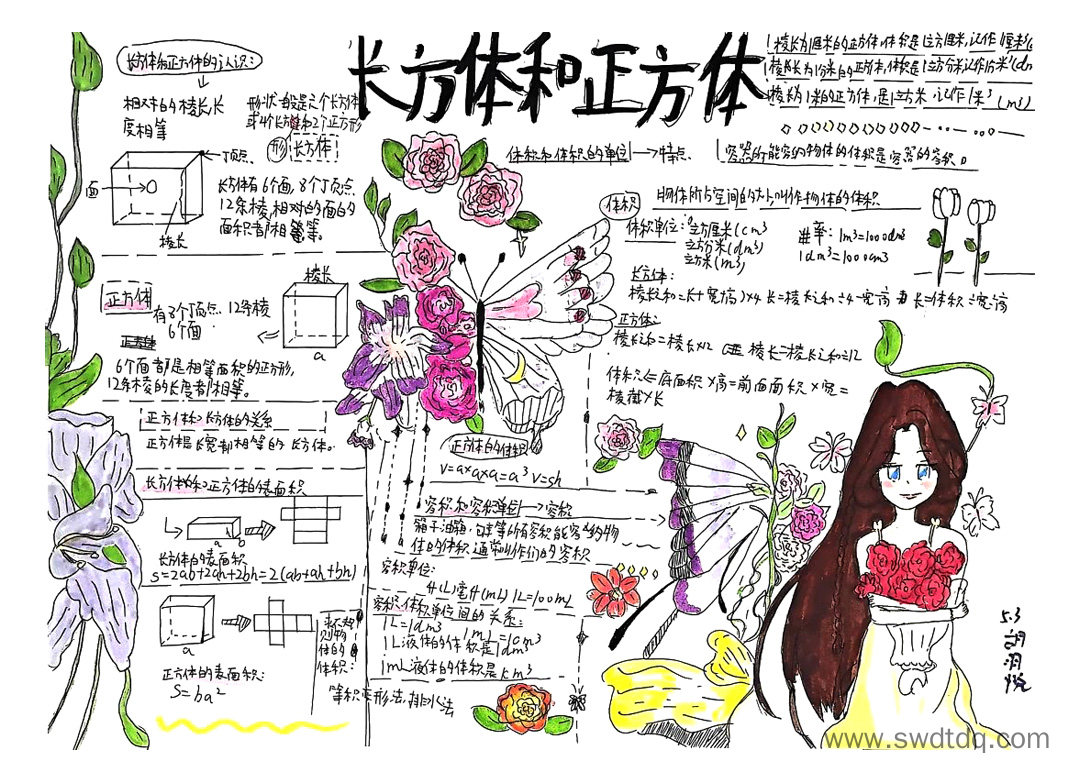 长方体和正方体
长方体和正方体的认识:
相对的棱长长
度相等
形状一般是六个长方体
或4个长方形和2个正方形
长方体
顶点
面
棱长
长方体有6个面,8个丁页点
12条棱,相对的面的
面积都相等。
正方体
棱长
有8个顶点、12条棱
6个面
a
6个面都是相等面积的正方形,
12条棱的长度都相等。
正方体和长方体的关系
正方体是长宽都相等的长方体。
长方体和正方体的表面积
a
b
长方体的表面积
S=2ab+2ah+2bh=2(ab+ah+bh)
a
正方体的表面积:
S=6a²
则物
体的
体积:
等积变形法,排水法
棱长为1厘米的正方体,体积是1立方厘米,记作1厘米³
棱长为1分米的正方体,体积是1立方分米记作1分米³(dm
棱长为1米的正方体,是1立方米,记作1米³(m³)
容器所能容纳物体的体积是容器的容积。
体积和体积的单位→特点.
体积
物体所占空间的大小叫作物体的体积
体积单位:立方厘米(cm³
立方分米(dm³)
立方米(m³)
进率:1m³=1000dm³
1dm³=1000cm³
长方体:
棱长之和=(长+宽+高)×4 长=棱长之和÷4-宽-高 长=体积÷宽÷高
正方体:
棱长之和=棱长×12 棱长=棱长之和÷12
体积=底面积×高=前面面积×宽=
×长
正方体的体积
V=a×a×a=a³ V=sh
容积和容积单位→容积
箱子油箱·等所能容纳物
体的体积通常叫作们的容积
容积单位:
升(L)毫升(mL) 1L=100mL
容积体积单位间的关系:
1L=1dm³
1mL=1cm³
1L液体的体积是1dm³
1mL液体的体积是1cm³
5.3
www.swdtdq.com